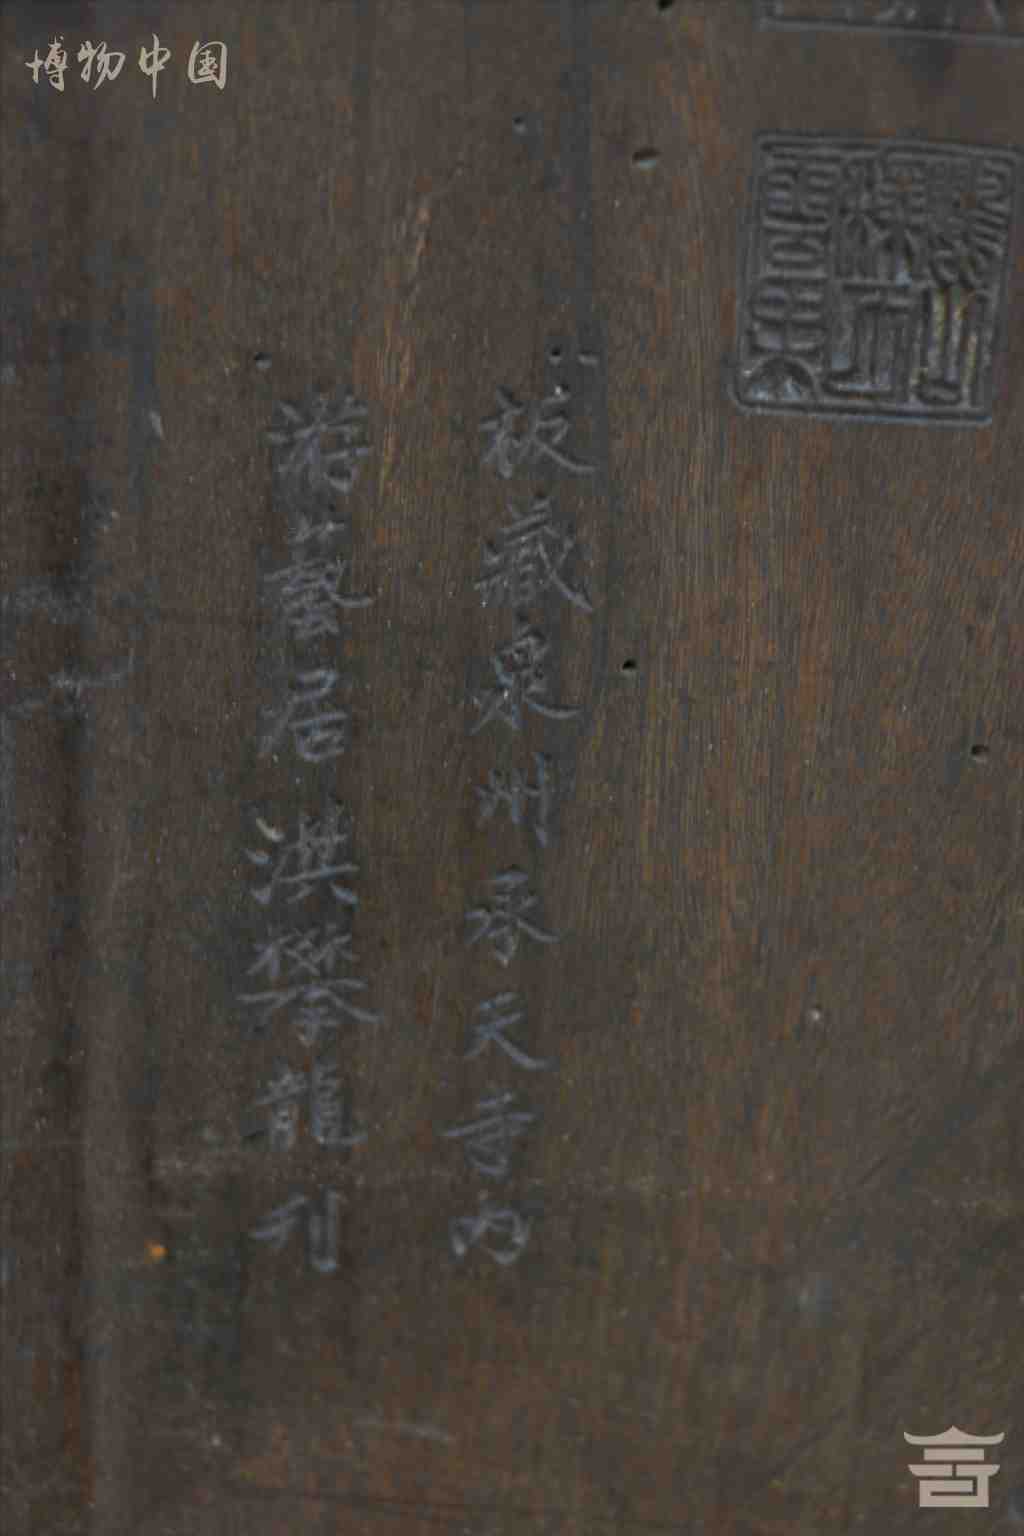 博物中国
板藏泉州承天寺內
游藝居洪攀龍刊